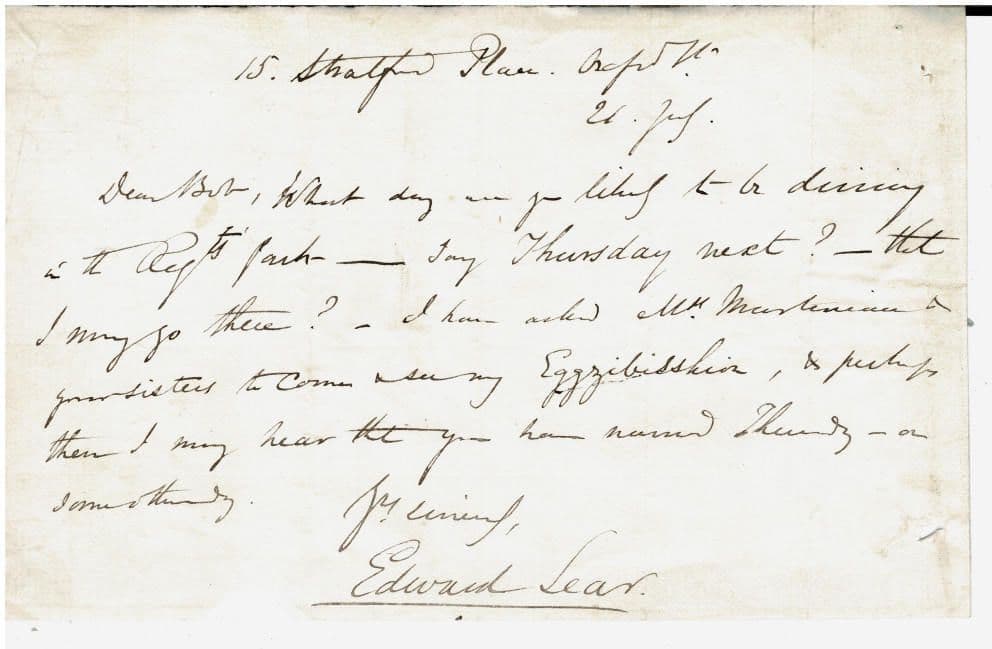 15. Stratford Place. Oxford St.
21. July.
Dear Bob, What day are you likely to be dining
in the Regts Park — say Thursday next? — that
I may go there? — I have asked Mrs. Martineau &
your sisters to come & see my Eggzibisshion, & perhaps
then I may hear that you have named Thursday — or
some other day.
Yrs. sincerely,
Edward Lear.